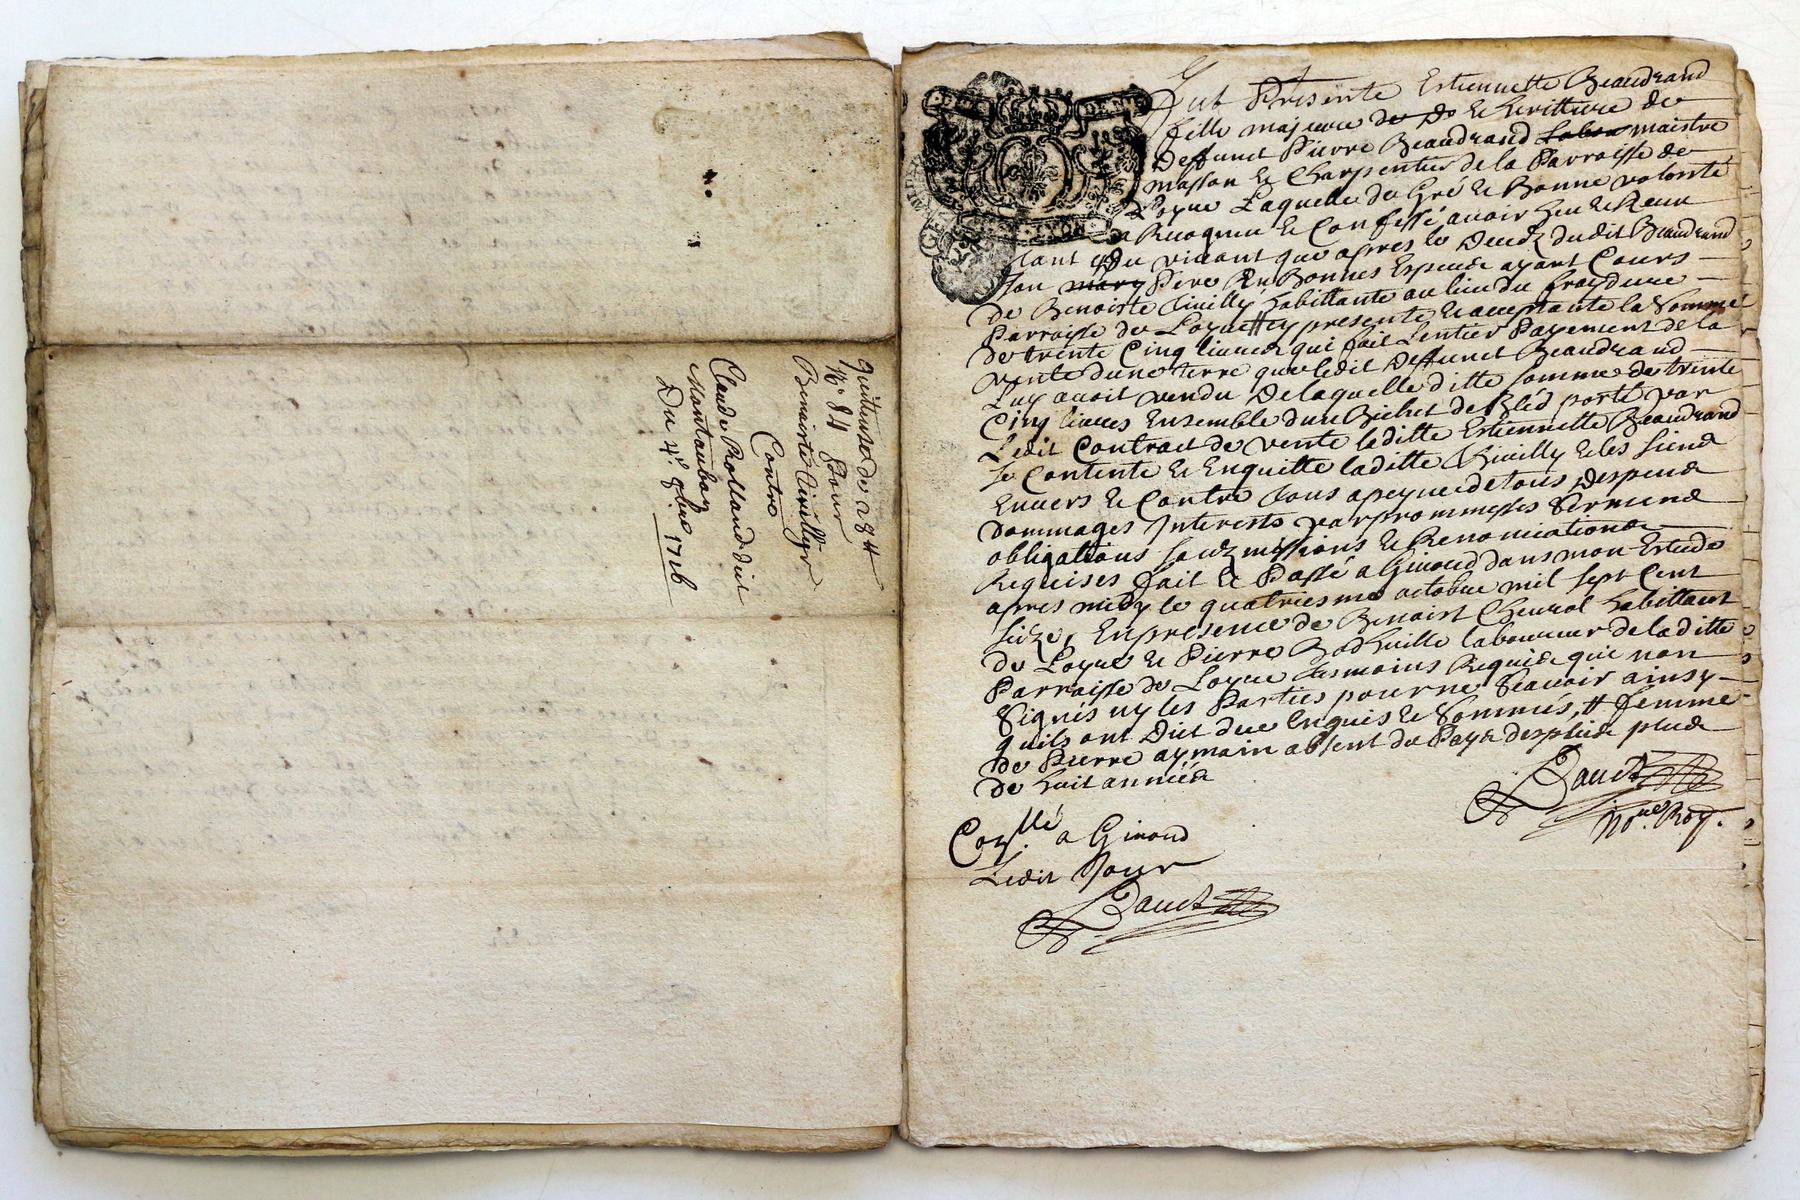 quittance de 28 tt
N.º 84 Pour
Benoiste Vivilly
Contre
Claude Rolland dict
Montauban
Du 4.e 9bre 1716
Fut Présente Estiennette Beaudrand
fille majeure de Do & heritiere de
Deffunct Pierre Beaudrand Labou maistre
masson & Charpentier de la Parroisse de
Loyue Laquelle du Gré & Bonne volonté
a Recogneu & Confessé avoir heu & Receu
tant du vivant que apres le Deudz dudit Beaudrand
son mary Pere En Bonnes Espece ayant Cours
de Benoiste Vivilly habittante au lieu du froydure
Parroisse de Loyue tt cy presente & acceptante la Somme
de trente Cinq livres qui fait Lentier Payement de la
vente dune terre que ledit Deffunct Beaudrand
Luy avoit vendu De laquelle ditte somme de trente
Cinq livres Ensemble dun Bichet de Bléd porté par
Ledit Contract de vente laditte Estiennette Beaudrand
se Contente & Enquitte laditte Vivilly & les siens
Envers & Contre tous a peyne de tous Despens
Dommages Interests par prommesses Serment
obligations souzmissions & Renonciations
Requises fait & Passé a Givord dans mon Estude
apres midy le quatriesme octobre mil sept Cent
seize, En presence de Benoist habittant
de Loyue & Pierre laboureur de la ditte
Parroisse de Loyue tesmoins Requis qui nont
Signés ny les Parties pour ne Scavoir ainsy
quils ont Dict de ce Enquis & Sommés, tt femme
de Pierre aymain absent du Pays despuis plus
de huit années
Dauct
No.re Roy.
Con.llé a Givord
Ledit Jour
Dauct